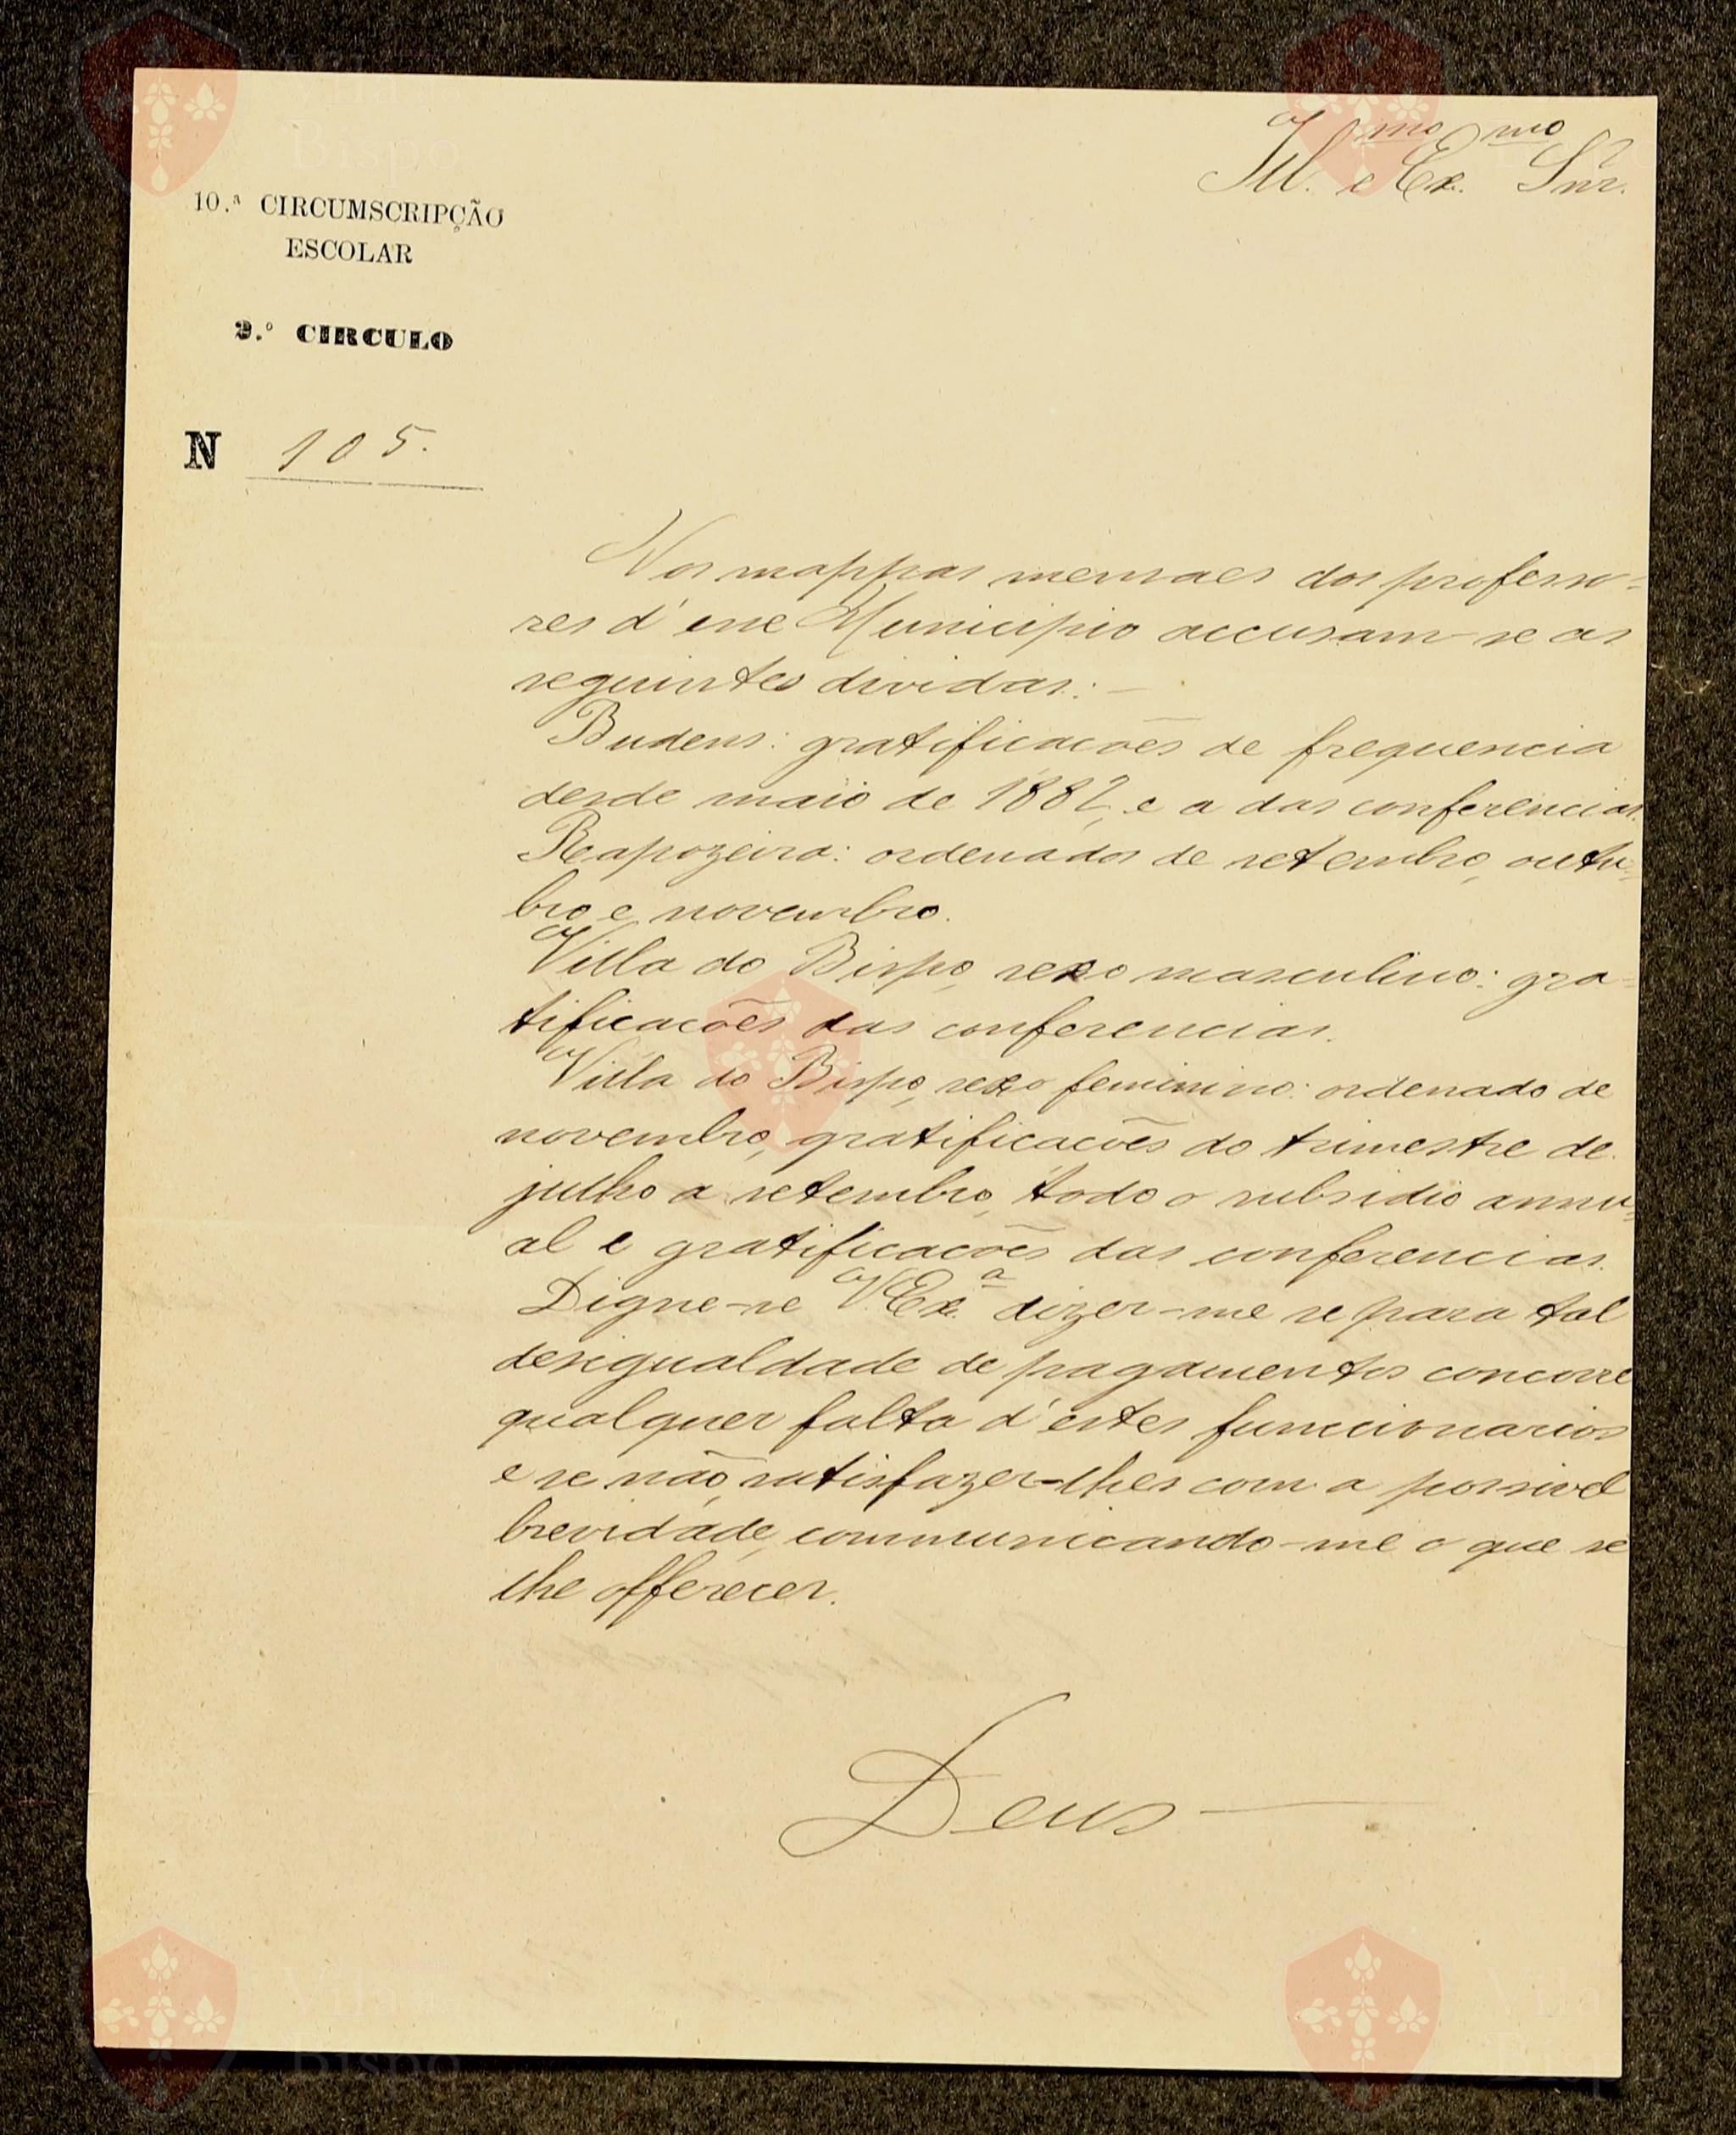 Ill.mo e Ex.mo Snr.
10.ª CIRCUMSCRIPÇÃO
ESCOLAR
2.º CIRCULO
N 105.
Nos mappas mensaes dos professo-
res d'esse Municipio accusam-se as
seguintes dividas:—
Budens: gratificacões de frequencia
desde maio de 1882, e a das conferencias.
Reapozeira: ordenados de setembro, outu-
bro e novembro.
Villa do Bispo, sexo masculino: gra-
tificacões das conferencias.
Villa do Bispo, sexo feminino: ordenado de
novembro, gratificacões do trimestre de
julho a setembro, todo o subsidio annu-
al e gratificacões das conferencias.
Digne-se V. Ex.ª dizer-me se para tal
desigualdade de pagamentos concorre
qualquer falta d'estes funccionarios
e se não, satisfazer-lhes com a possivel
brevidade, communicando-me o que se
lhe offerecer.
Deus—
Vila
Bispo
Vila
Bispo
Vila